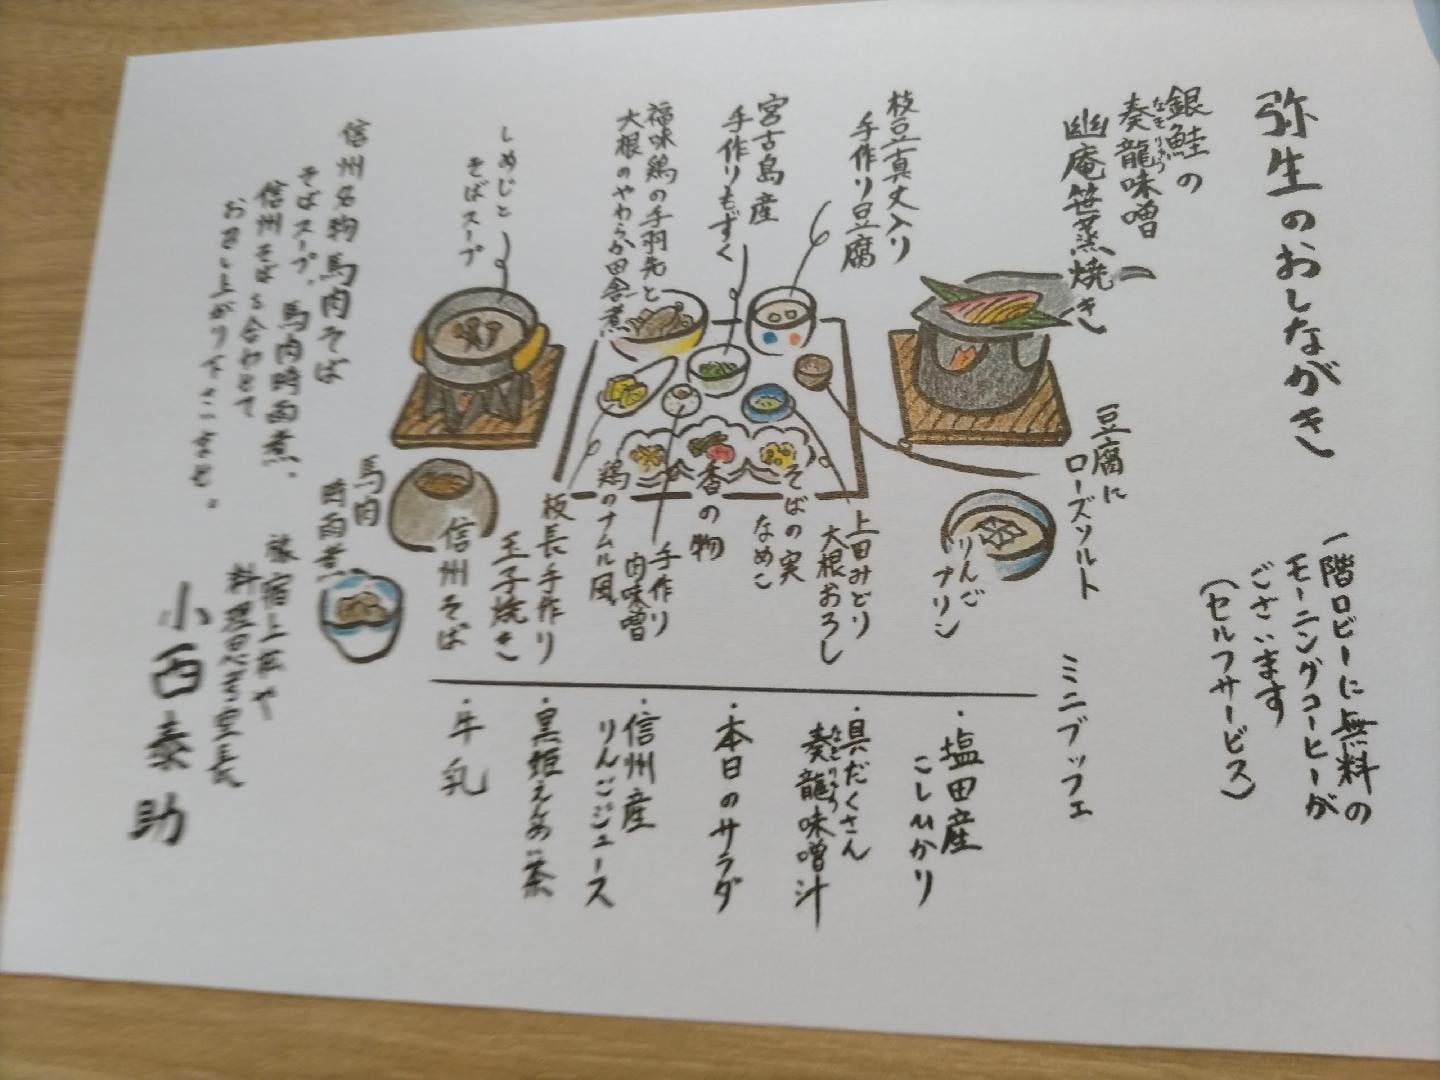 弥生のおしながき
一階ロビーに無料の
モーニングコーヒーが
ございます
(セルフサービス)
銀鮭の
奏龍味噌
なそりゅう
幽庵笹蒸焼き
豆腐に
ローズソルト
りんご
プリン
枝豆真丈入り
手作り豆腐
宮古島産
手作りもずく
福味鶏の手羽先と
大根のやわらか田舎煮
しめじと
そばスープ
上田みどり
大根おろし
そばの実
なめこ
香の物
手作り
肉味噌
鶏のナムル風
板長手作り
玉子焼き
信州そば
馬肉
時雨煮
信州名物馬肉そば
そばスープ、馬肉時雨煮、
信州そばを合わせて
お召し上がり下さいませ。
ミニブッフェ
・塩田産
こしひかり
・具だくさん
奏龍味噌汁
なそりゅう
・本日のサラダ
・信州産
りんごジュース
・黒姫えんめい茶
・牛乳
旅宿上松や
料理思考室長
小西泰助